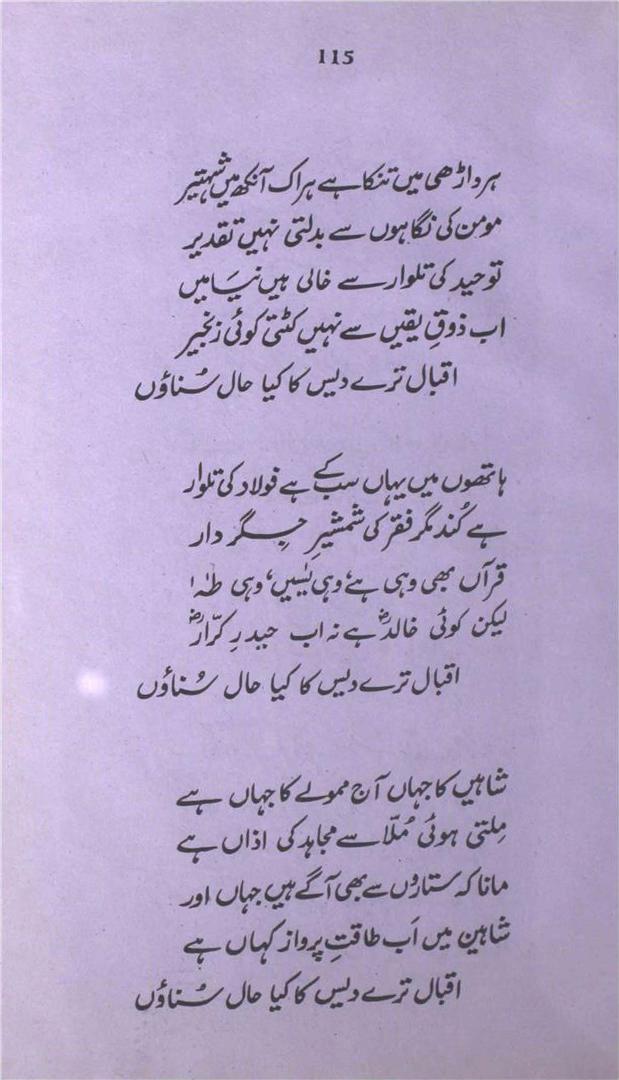 115
ہر داڑھی میں تنکا ہے ہر اک آنکھ میں شہتیر
مومن کی نگاہوں سے بدلتی نہیں تقدیر
توحید کی تلوار سے خالی ہیں نیامیں
اب ذوقِ یقیں سے نہیں کٹتی کوئی زنجیر
اقبال ترے دیس کا کیا حال سُناؤں
ہاتھوں میں یہاں سب کے ہے فولاد کی تلوار
ہے کُند مگر فقر کی شمشیرِ جِگر دار
قرآں بھی وہی ہے، وہی یٰسیں، وہی طٰہٰ
لیکن کوئی خالدؓ ہے نہ اب حیدرِ کرّارؓ
اقبال ترے دیس کا کیا حال سُناؤں
شاہیں کا جہاں آج ممولے کا جہاں ہے
مِلتی ہوئی مُلّا سے مجاہد کی اذاں ہے
مانا کہ ستاروں سے بھی آگے ہیں جہاں اور
شاہین میں اَب طاقتِ پرواز کہاں ہے
اقبال ترے دیس کا کیا حال سُناؤں